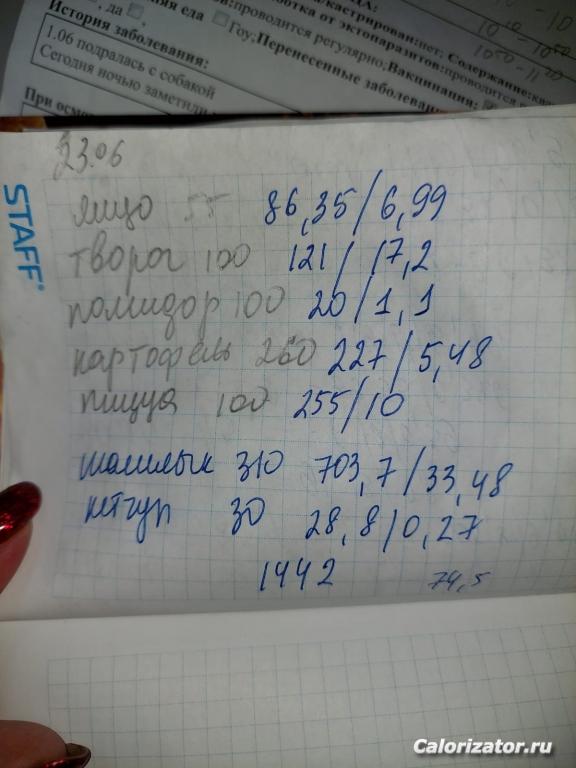 , да
ная еда Гоу;
История заболевания:
1.06 подралась с собакой
Сегодня ночью заметили
При осмо
кастрирован:нет; Содержание:ква
ботка от эктопаразитов:проводится
проводится регулярно;Вакцинация:
Перенесенные заболеван
1050-1100
STAFF
23.06
яйцо 55 86,35/6,99
творог 100 121/17,2
помидор 100 20/1,1
картофель 260 227/5,48
пицца 100 255/10
шашлык 310 703,7/33,48
кетчуп 30 28,8/0,27
1442 74,5
Calorizator.ru